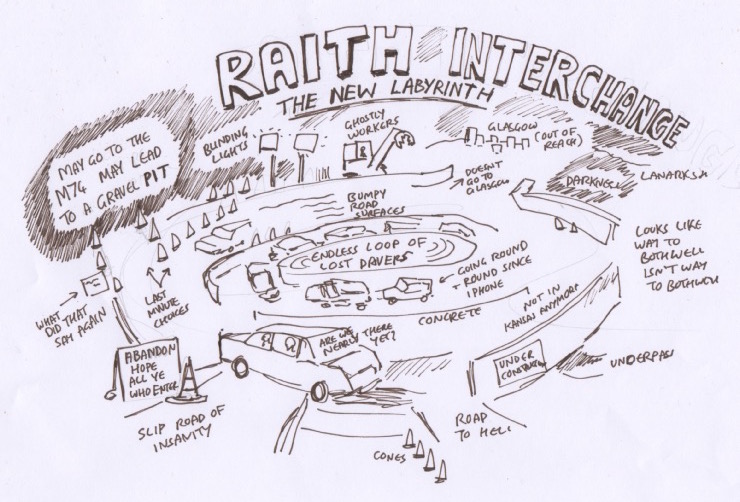 RAITH INTERCHANGE
THE NEW LABYRINTH
MAY GO TO THE
M74 MAY LEAD
TO A GRAVEL PIT
BLINDING
LIGHTS
GHOSTLY
WORKERS
GLASGOW
(OUT OF
REACH)
DARKNESS
LANARKSH
DOESNT
GO TO
GLASGOW
BUMPY
ROAD
SURFACES
ENDLESS LOOP OF
LOST DRIVERS
LOOKS LIKE
WAY TO
BOTHWELL
ISN'T WAY
TO BOTHWELL
GOING ROUND
+ ROUND SINCE
1 PHONE
LAST
MINUTE
CHOICES
WHAT
DID THAT
SAY AGAIN
CONCRETE
NOT IN
KANSAS ANYMORE
ARE WE
NEARLY THERE
YET?
ABANDON
HOPE
ALL YE
WHO ENTER
UNDER
CONSTRUCTION
UNDERPASS
SLIP ROAD OF
INSANITY
ROAD
TO HELL
CONES